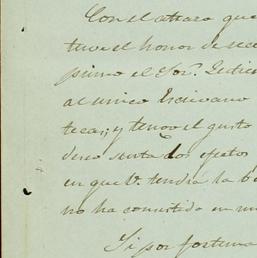 Con el atraso que
tuve el honor de rec
primo el Sor.
al unico Escrivano
tecas; y tengo el gusto
deseo surta los efetos
en que V. tendrá la b
no ha consistido en mi
Si por fortuna